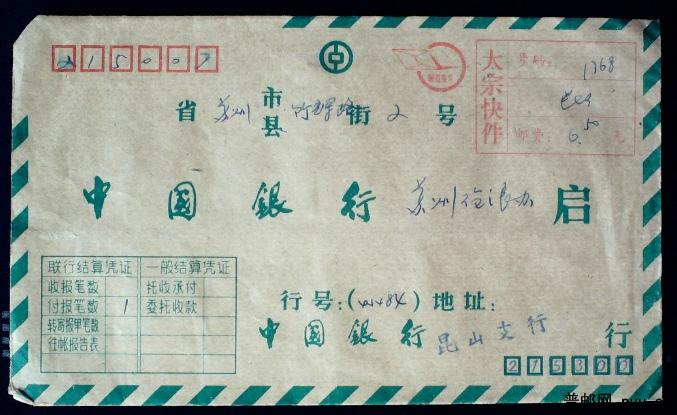 215007
大宗快件
号码: 1368
邮资: 6.50 元
省 苏州 市县 街 2 号
中國銀行 苏州 启
联行结算凭证 一般结算凭证
收报笔数 托收承付
付报笔数 1 委托收款
转寄报单笔数
往帐报告表
行号:( 84 ) 地址:
中國銀行 昆山支行 行
215300
普邮网